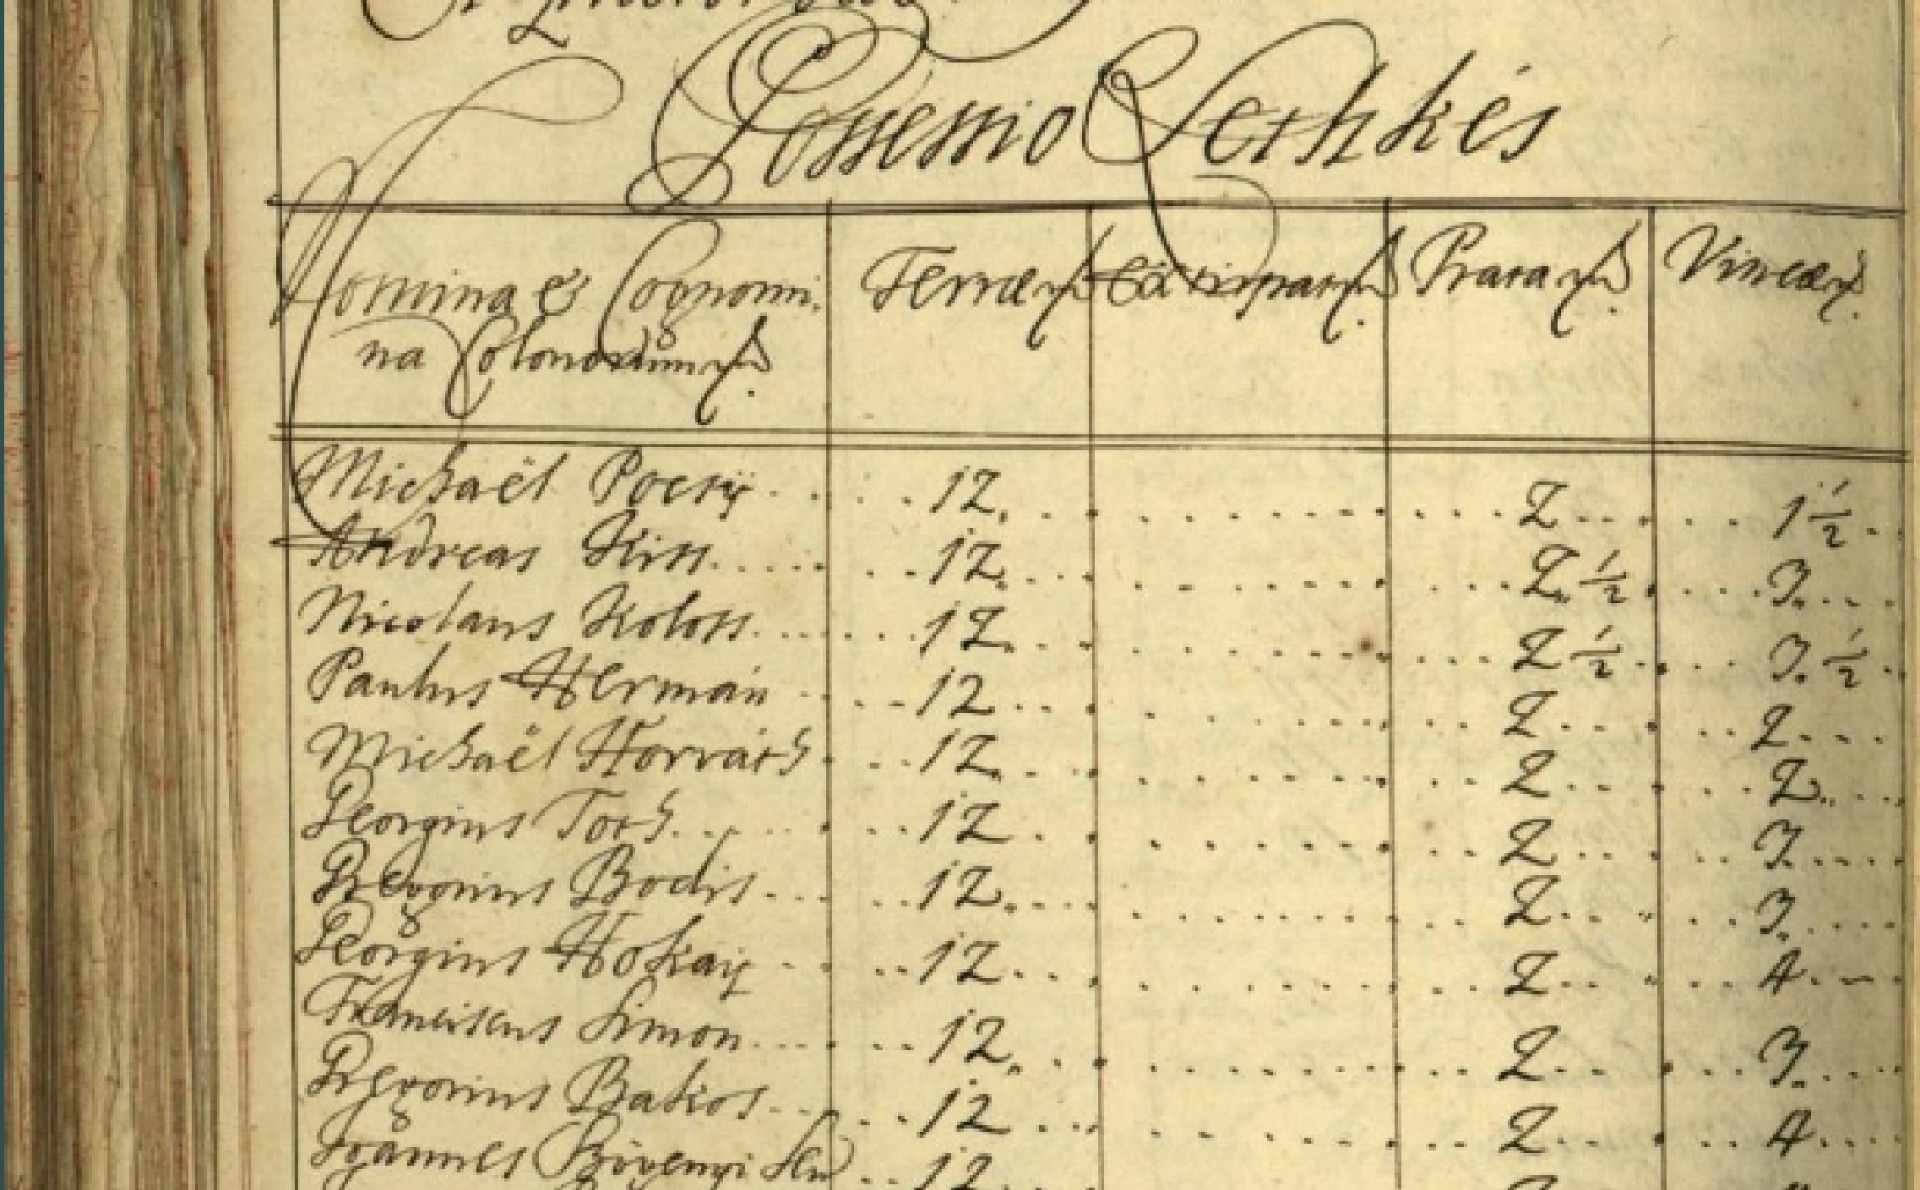 Possessio Lethkés
Nomina & Cognomi-
na Colonorum
Terræ
Extirpat
Prata
Vineæ
Michaël Pocsÿ 12 2 1 1/2
Andreas Kiss 12 2 1/2 3
Nicolaus Koloss 12 2 1/2 3 1/2
Paulus Hermán 12 2 2
Michaël Horváth 12 2 2
Georgius Toth 12 2 3
Gregorius Bodis 12 2 3
Georgius Hokaÿ 12 2 4
Franciscus Simon 12 2 3
Gregorius Bakos 12 2 4
Joannes 12